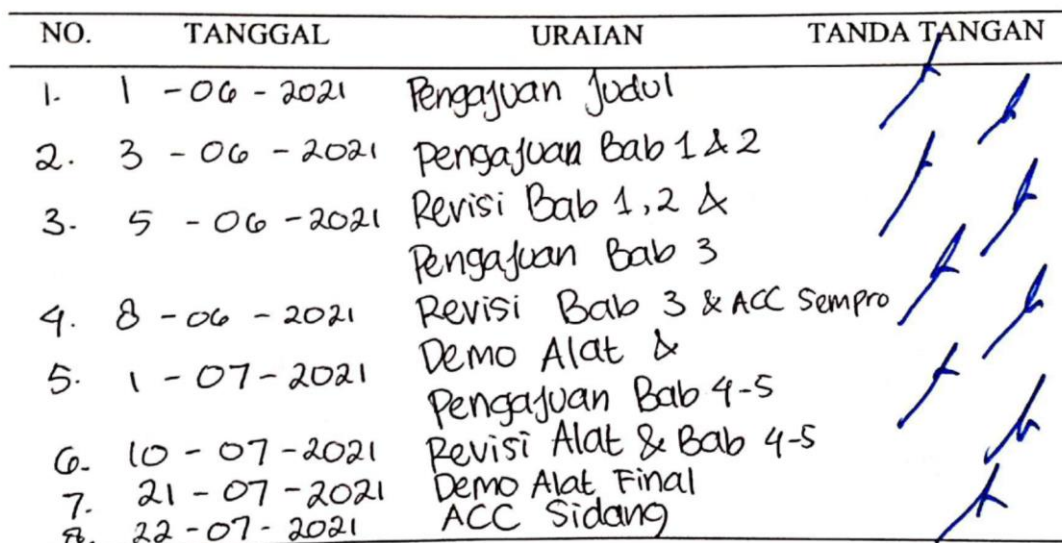 NO. TANGGAL URAIAN TANDA TANGAN
1. 1 - 06 - 2021 Pengajuan Judul
2. 3 - 06 - 2021 Pengajuan Bab 1 & 2
3. 5 - 06 - 2021 Revisi Bab 1, 2 &
Pengajuan Bab 3
4. 8 - 06 - 2021 Revisi Bab 3 & ACC Sempro
5. 1 - 07 - 2021 Demo Alat &
Pengajuan Bab 4-5
6. 10 - 07 - 2021 Revisi Alat & Bab 4-5
7. 21 - 07 - 2021 Demo Alat Final
8. 22 - 07 - 2021 ACC Sidang